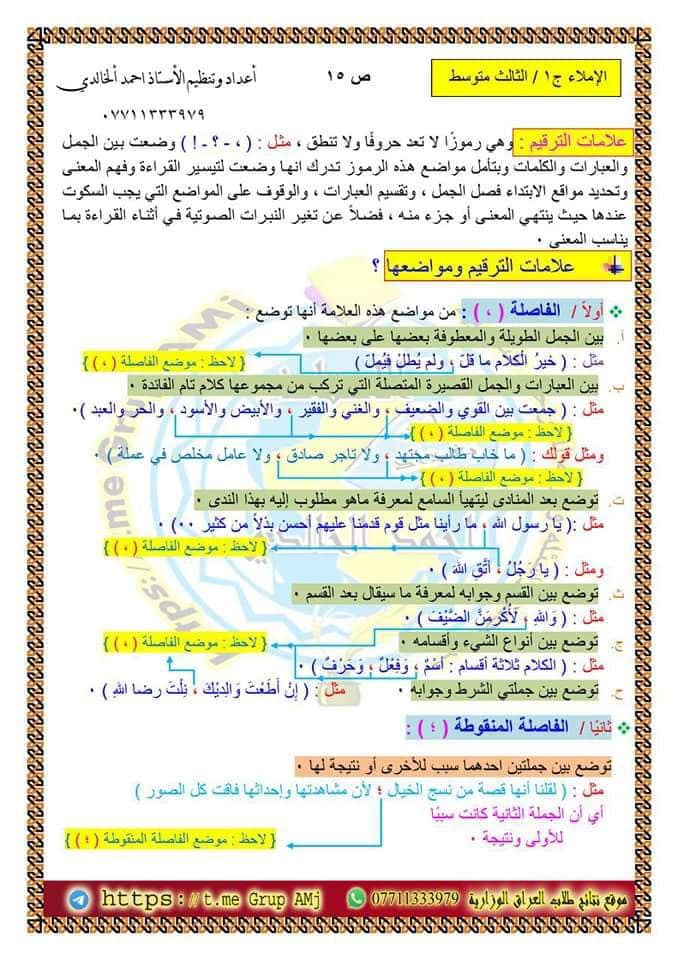 الإملاء ج١ / الثالث متوسط
ص ١٥
أعداد وتنظيم الأستاذ احمد الخالدي
٠٧٧١١٣٣٣٩٧٩
علامات الترقيم : وهي رموزًا لا تعد حروفًا ولا تنطق ، مثل : ( ، - ؟ - ! ) وضعت بين الجمل
والعبارات والكلمات وبتأمل مواضع هذه الرموز تدرك انها وضعت لتيسير القراءة وفهم المعنى
وتحديد مواقع الابتداء فصل الجمل ، وتقسيم العبارات ، والوقوف على المواضع التي يجب السكوت
عندها حيث ينتهي المعنى أو جزء منه ، فضلاً عن تغير النبرات الصوتية في أثناء القراءة بما
يناسب المعنى ٠
علامات الترقيم ومواضعها ؟
أولاً / الفاصلة ( ، ) : من مواضع هذه العلامة أنها توضع :
أ. بين الجمل الطويلة والمعطوفة بعضها على بعضها ٠
مثل : ( خيرُ الكَلَام ما قلّ ، ولم يُطلْ فيُملّ ) { لاحظ : موضع الفاصلة ( ، ) }
ب. بين العبارات والجمل القصيرة المتصلة التي تركب من مجموعها كلام تام الفائدة ٠
مثل : ( جمعت بين القوي والضعيف ، والغني والفقير ، والأبيض والأسود ، والحر والعبد )٠
{ لاحظ : موضع الفاصلة ( ، ) }
ومثل قولك : ( ما خاب طالب مجتهد ، ولا تاجر صادق ، ولا عامل مخلص في عملة ) ٠
{ لاحظ : موضع الفاصلة ( ، ) }
ت. توضع بعد المنادى ليتهيأ السامع لمعرفة ماهو مطلوب إليه بهذا الندى ٠
مثل :( يا رسول الله ، ما رأينا مثل قوم قدمنا عليهم أحسن بذلاً من كثير ٠٠ )
{ لاحظ : موضع الفاصلة ( ، ) }
ومثل : ( يا رَجُلُ ، اتَّقِ اللهَ ) ٠
ث. توضع بين القسم وجوابه لمعرفة ما سيقال بعد القسم ٠
مثل : ( وَاللهِ ، لَأُكْرِمَنَّ الضَّيْفَ ) ٠
ج. توضع بين أنواع الشيء وأقسامه ٠ { لاحظ : موضع الفاصلة ( ، ) }
مثل : ( الكلام ثلاثة أقسام : أسْمٌ ، وَفِعْلٌ ، وَحَرْفٌ ) ٠
ح. توضع بين جملتي الشرط وجوابه ٠ مثل : ( إنْ أطَعْتَ وَالِدَيْكَ ، نِلْتَ رضا اللهِ ) ٠
ثانيًا / الفاصلة المنقوطة ( ؛ ) :
توضع بين جملتين احدهما سبب للأخرى أو نتيجة لها ٠
مثل : ( لقلنا أنها قصة من نسج الخيال ؛ لأن مشاهدتها وإحداثها فاقت كل الصور )
أي أن الجملة الثانية كانت سببًا
للأولى ونتيجة ٠
{ لاحظ : موضع الفاصلة المنقوطة ( ؛ ) }
موقع نتائج طلاب العراق الوزارية 07711333979 https://t.me Grup AMj